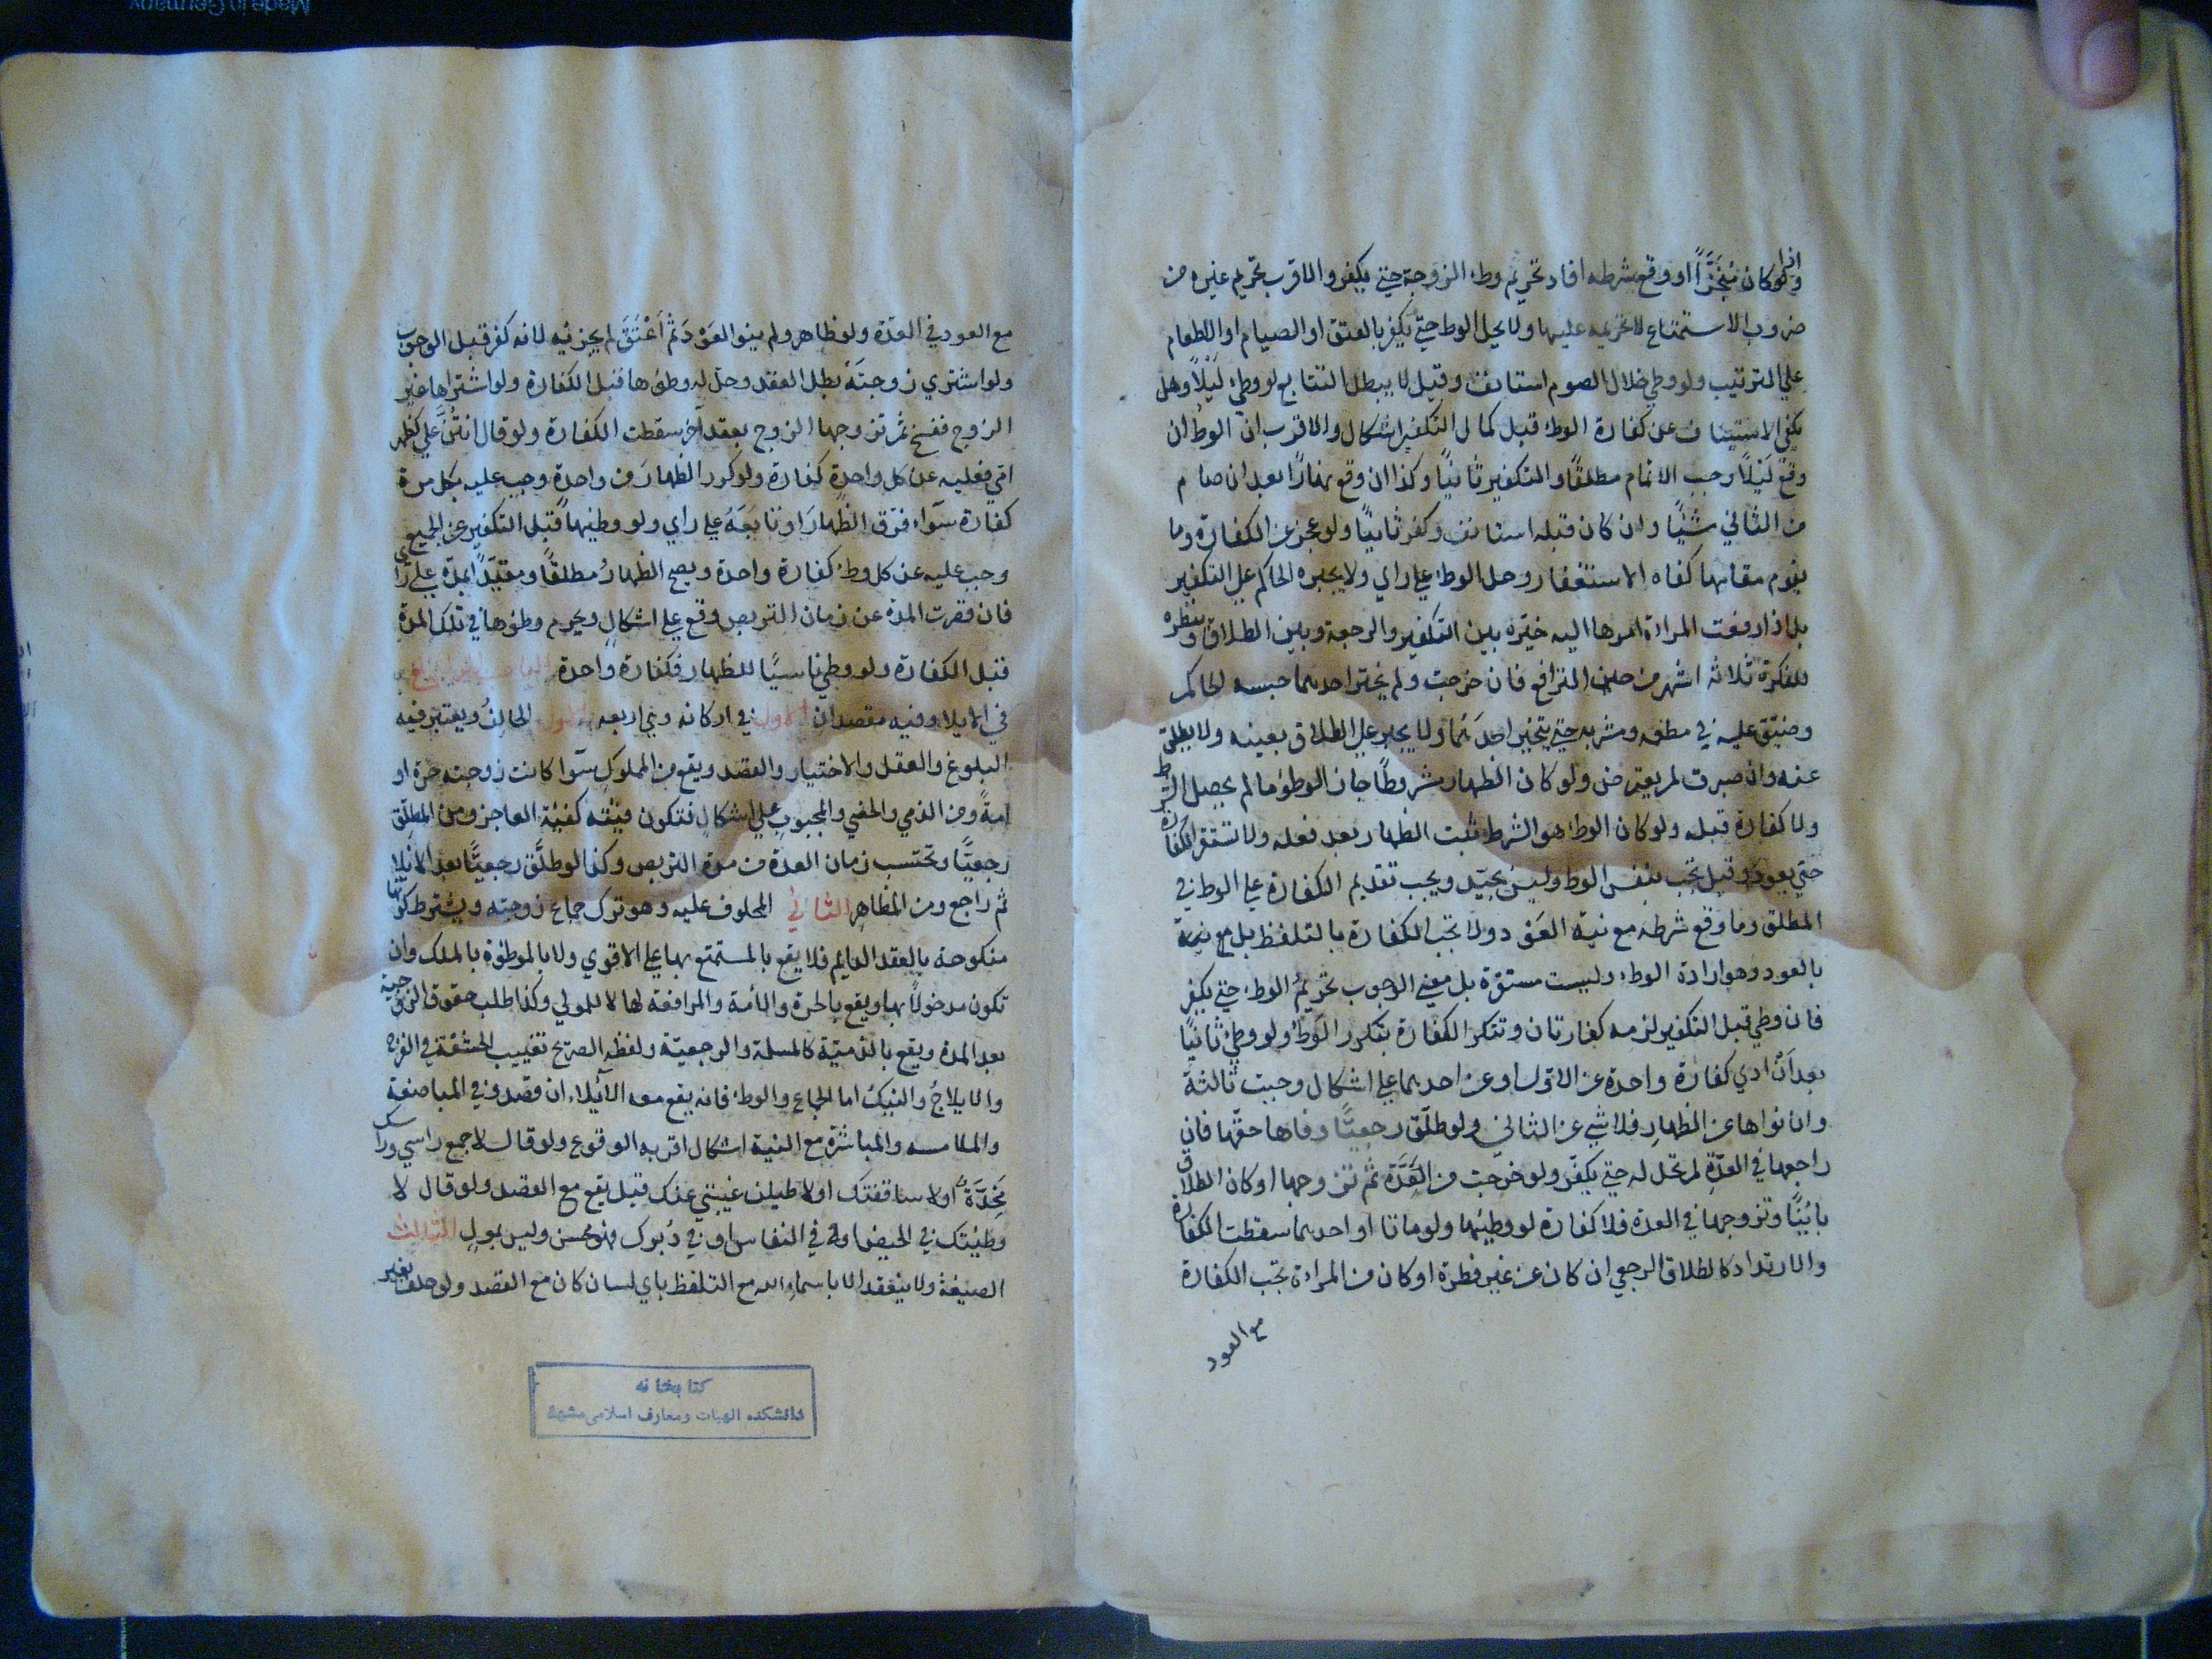 اذا
ولو كان مُنَجَّزًا او وقع شرطه افاد تحريم وطء الزوجة حتي يكفر والاقرب تحريم غيره من
ضروب الاستمتاع لا تحريمه عليها ولا يحل الوطء حتي يكفر بالعتق او الصيام او الاطعام
علي الترتيب ولو وطي خلال الصوم استانف وقيل لا يبطل التتابع لو وطي لَيْلًا وهل
يكفي الاستيناف عن كفارة الوطء قبل كمال التكفير اشكال والاقرب ان الوطء ان
وقع لَيْلًا وجب الاتمام مطلقًا والتكفير ثانيًا وكذا ان وقع نهارًا بعد ان صام
من الثاني شيئًا وان كان قبله استانف وكفر ثانيًا ولو عجز عن الكفارة وما
يقوم مقامها كفاه الاستغفار وحل الوطء علي راي ولا يجبره الحاكم علي التكفير
بل اذا رفعت المراة امرها اليه خيّره بين التكفير والرجعة وبين الطلاق وينظره
للفكرة ثلاثة اشهر من حين الترافع فان خرجت ولم يختر احدهما حبسه الحاكم
وضيّق عليه في مطعمه ومشربه حتي يتخير احدَهُما ولا يجبر علي الطلاق بعينه ولا يطلق
عنه وان صبرت لم يعترض ولو كان الظهار مشروطًا جاز الوطؤ ما لم يحصل الشرط
ولا كفارة قبله ولو كان الوطء هو الشرط ثبت الظهار بعد فعله ولا تستقر الكفارة
حتي يعود وقيل تجب بنفس الوطء وليس بجيّد ويجب تقديم الكفارة علي الوطء في
المطلق وما وقع شرطه مع نية العَوْد ولا تجب الكفارة بالتلفظ بل مع نية
بالعود وهو ارادة الوطء وليست مستقرّة بل معني الوجوب تحريمُ الوطء حتي يكفر
فان وطي قبل التكفير لزمه كفارتان وتتكرر الكفارة بتكرر الوطء ولو وطي ثانيًا
بعد اَنْ ادي كفارة واحدة عن الاوّل او عن احدهما علي اشكال وجبت ثالثة
وان نواها عن الظهارِ فلا شي عن الثاني ولو طلّق رجعيًّا وفاها حقّها فان
راجعها في العدّةِ لم تحل له حتي يكفّر ولو خرجت من العِدَّة ثم تزوجها او كان الطلاق
بائنًا وتزوجها في العدة فلا كفارة لو وطيها ولو ماتا او احدهما سقطت الكفارة
والارتداد كالطلاق الرجعي ان كان عن غير فطرة او كان من المراءة تجب الكفارة
مع العود
مع العود في العدّة ولو ظاهر ولم ينو العَوْدَ ثم اَعْتَقَ لم يجزئه لانه كفر قبل الوجوب
ولو اشتري زوجتَهُ بطل العقد وحل له وطؤها قبل الكفارة ولو اشتراها غير
الزوج ففسخ ثم تزوجها الزوج بعقد آخر سقطت الكفارة ولو قال انتُنَّ علي كظهر
امي فعليه عن كل واحدة كفارة ولو كرر الظهارَ من واحدة وجب عليه بكل مرة
كفارة سَوآء فرّق الظهارَ او تابَعَهُ علي راي ولو وطئها قبل التكفير عن الجميع
وجب عليه عن كل وطء كفارة واحدة ويصح الظهارُ مطلقًا ومقيّدًا بمدّة علي راي
فان قصرت المدة عن زمان التربص وقع علي اشكال ويحرم وطؤها في تلك المدة
قبل الكفارة ولو وطي ناسيًا للظهار فكفارة واحدة
في الايلاء وفيه مقصدان الاول في اركانه وهي اربعه الاول الحالفُ ويعتبر فيه
البلوغ والعقل والاختيار والقصد ويقع من المملوك سَوآ كانت زوجته حرة او
امةً ومن الذمي والخصي والمجبوب علي اشكالٍ فتكون فيئته كفيئة العاجز ومن المطلّق
رجعيًّا وتحتسب زمان العدة من مدة التربص وكذا لو طلَّق رجعيًّا بعد الايلاء
ثم راجع ومن المظاهر الثاني المحلوف عليه وهو ترك جماع زوجته ويشترط كونها
منكوحة بالعقد الدايم فلا يقع بالمستمتع بها علي الاقوي ولا بالموطؤة بالملك وان
تكون مدخولًا بها ويقع بالحرة والامة والمرافعة لها لا للمولي وكذا طلب حقوق الزوجية
بعد المدة ويقع بالذميّة كالمسلمة والرجعيّة ولفظه الصريح تغييب الحشفة في الفرج
والايلاجُ والنيكُ اما الجماع والوطء فانه يقع معه الآيلاء ان قصد وفي المباضعة
والملامسه والمباشرة مع النية اشكال اقربه الوقوع ولو قال لا جمع راسي وراسك
مَخِدَّةٌ او لا ساقفتك او لا طيلن غيبتي عنك قيل يقع مع القصد ولو قال لا
وطئتك في الحيض او في النفاس او في دُبرك فهو محسن وليس بمولٍ الثالث
الصيغة ولا ينعقد الا باسماءِ الله مع التلفظ باي لسان كان مع القصد ولو حلف بغير
كتابخانه
دانشكده الهيات ومعارف اسلامی مشهد
Made in Germany